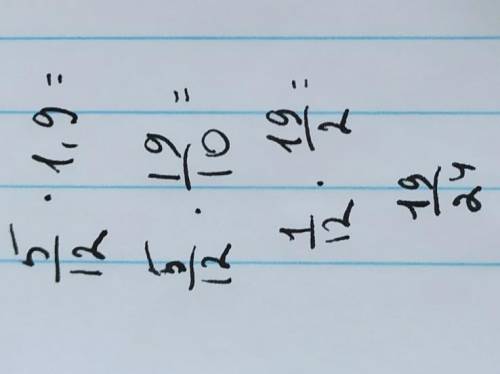 5/12 · 1,9 =
5/12 · 19/10 =
1/12 · 19/2 =
19/24